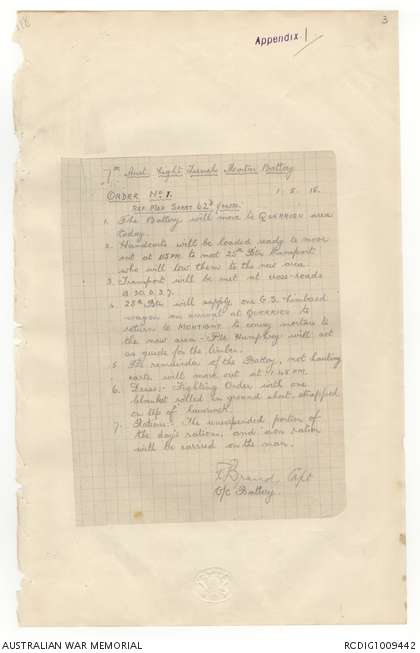 118
3
Appendix 1
7th Aust. Light Trench Mortar Battery
ORDER No 1.
1.5.18.
REF. MAP SHEET 62D 1/40000.
1. The Battery will move to QUERRIEU area
today.
2. Handcarts will be loaded ready to move
out at to meet 25th Btn transport
who will tow them to the new area
3. Transport will be met at cross-roads
B.30.D.3.7.
4. 25th Btn will supply one G.S. limbered
wagon on arrival at QUERRIEU to
return to MONTIGNY to convey mortars to
the new area - Pte Humphrey will act
as guide for the limber.
5. The remainder of the Battery, not hauling
carts will march out at 1.45 P.M.
6. Dress:- Fighting Order with one
blanket rolled in ground sheet, strapped
on top of haversack.
7. Rations:- The unexpended portion of
the day's ration, and iron ration
will be carried on the man.
Brand, Capt
O/C Battery.
AUSTRALIAN WAR MEMORIAL
RCDIG1009442